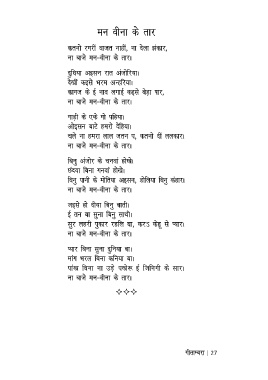 मन वीना के तार
कतनो रगरीं बाजत नाहीं, ना देला झंकार,
ना बाजे मन-वीना के तार।
दुनिया अइसन रात अंजोरिया।
देखीं कइसे भरम अन्हरिया।
कागज के ई नाव लगाई कइसे बेड़ा पार,
ना बाजे मन-वीना के तार।
गाड़ी के एके गो पहिया।
ओइसन बाटे हमरो देहिया।
चले ना हमरा लाल जतन प, कतनो दीं ललकार।
ना बाजे मन-वीना के तार।
बिनु अंजोर के चनवां होखे।
बिना गनवां होखे।
बिनु पानी के मोतिया अइसन, डोलिया बिनु कंहार।
ना बाजे मन-वीना के तार।
जइसे हो दीया बिनु बाती।
ई तन बा सुना बिनु साथी।
सुर लहरी पुकार रहलि बा, करऽ केहू से प्यार।
ना बाजे मन-वीना के तार।
प्यार बिना सुना दुनिया बा।
मांग भरल बिना कनिया बा।
पांख बिना ना उड़े पखेरू ई जिनिगी के सार।
ना बाजे मन-वीना के तार।
गीताम्बरा | 27